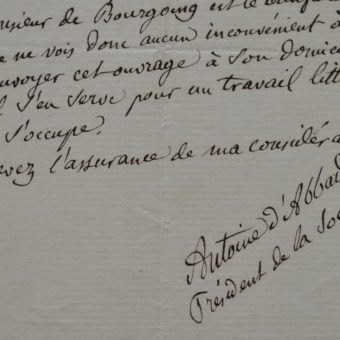 sieur de Bourgoing est le
e ne vois donc aucun inconvénient à
nvoyer cet ouvrage à son domici
il s'en serve pour un travail litt
s'occupe.
evez l'assurance de ma considéra
Antoine d'Abbad
Président de la Soc